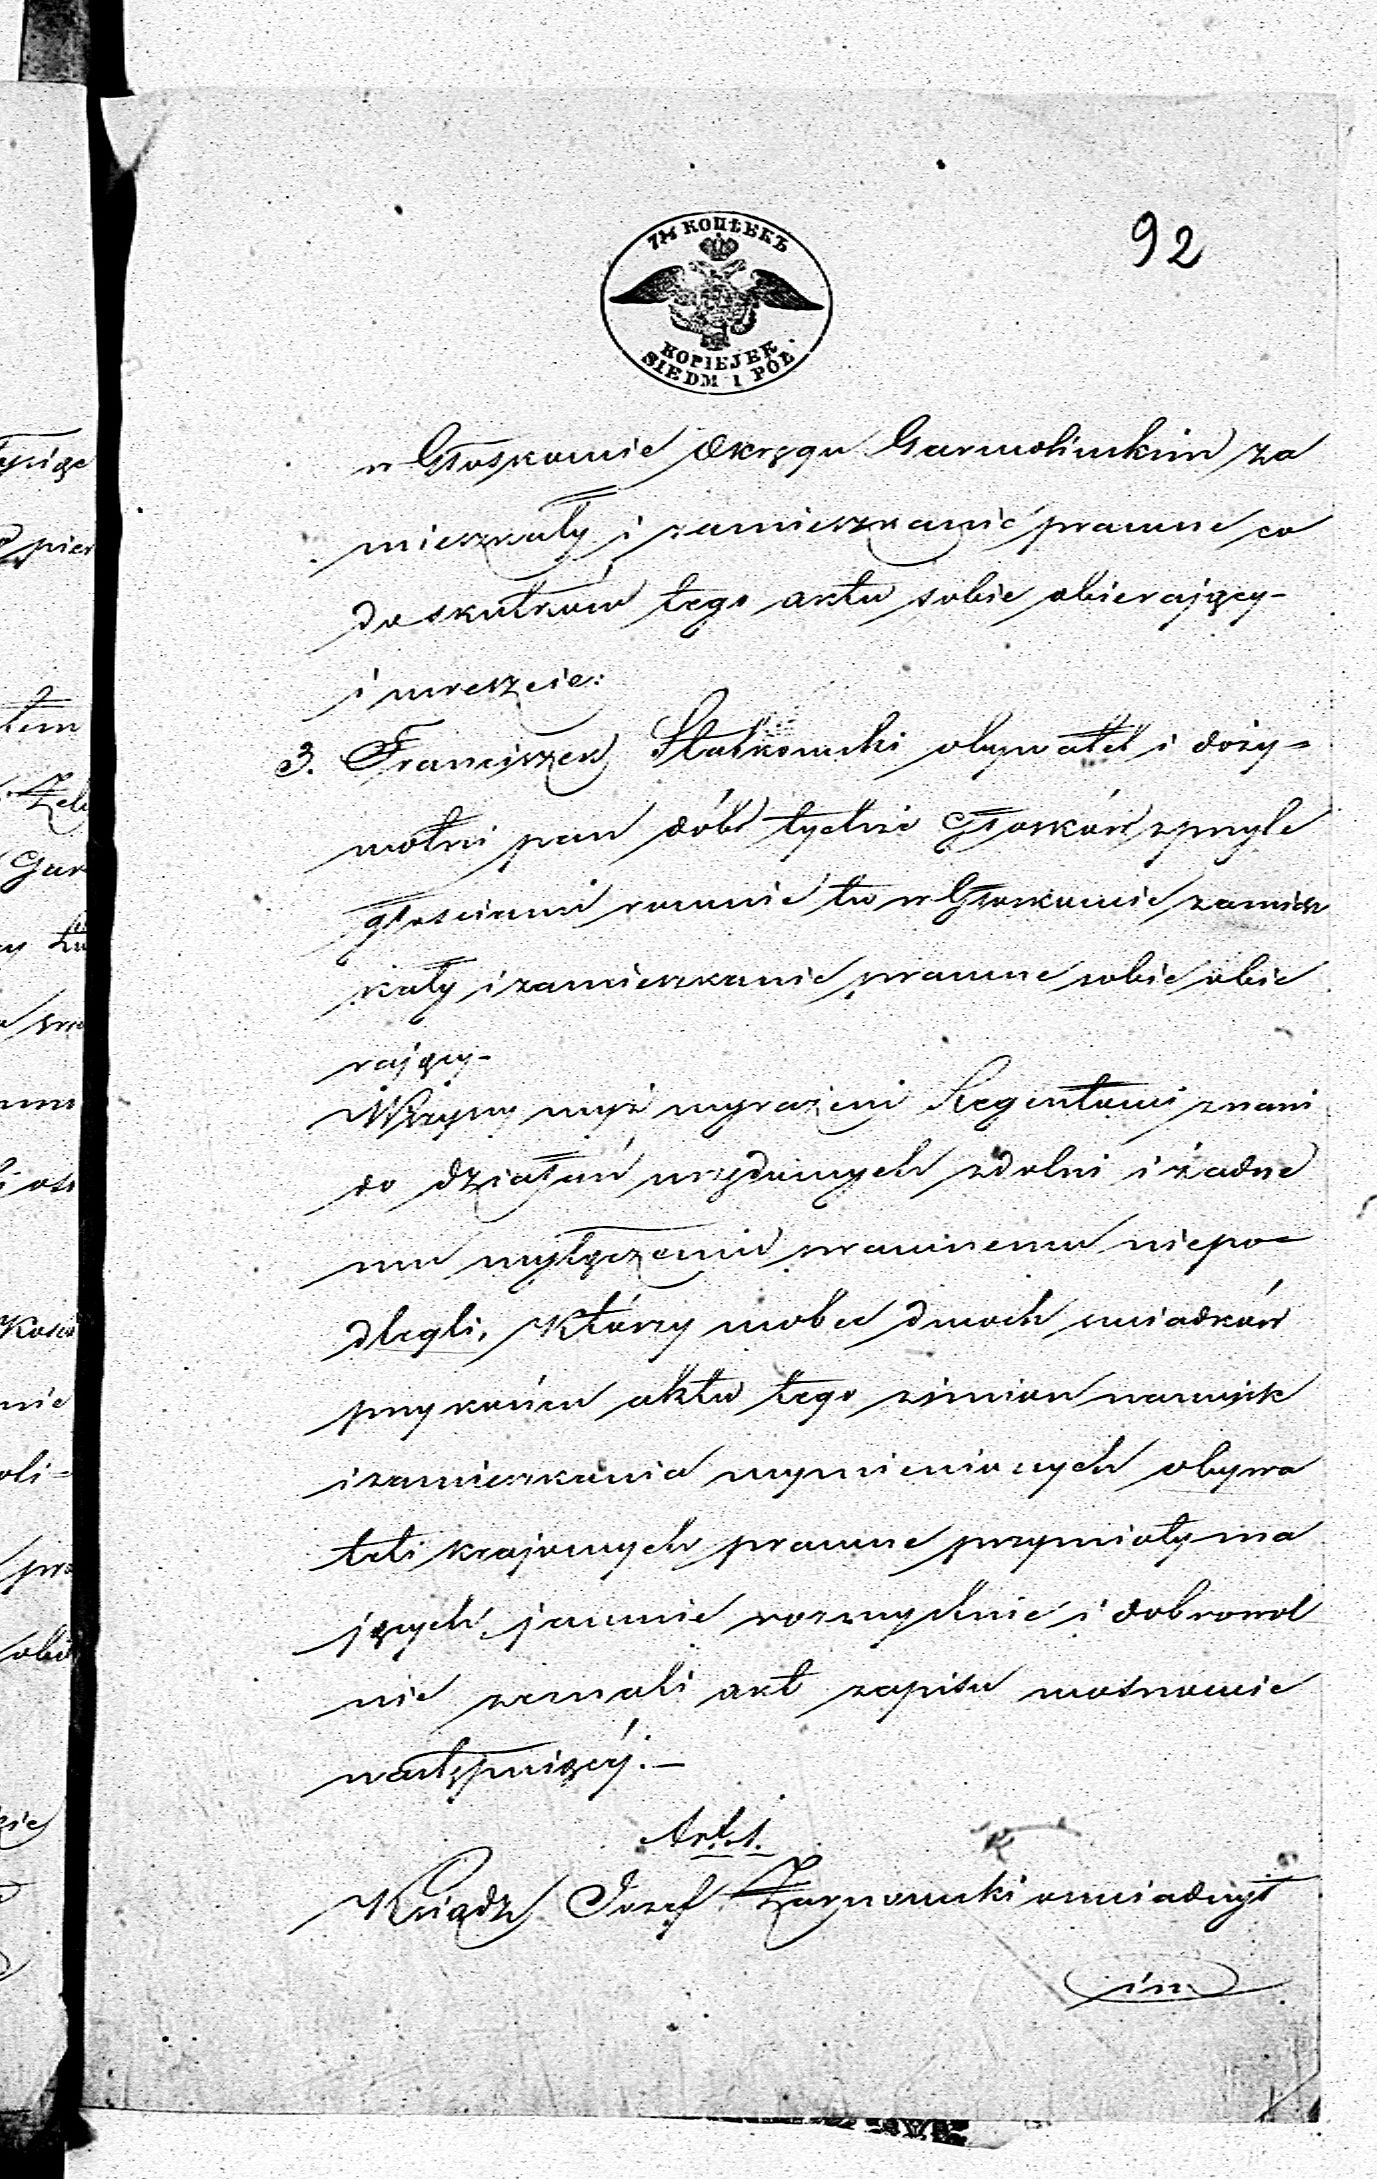 92
7½ КОПѢЕКЪ
KOPIEJEK
SIEDM I PÓŁ
w Głoskowie Okręgu Garwolińskim za
mieszkały i zamieszkanie prawne co
do skutków tego aktu sobie obierający-
i wreszcie:
3. Franciszek Slaskowski obywatel i doży-
wotni pan dóbr tychże Głosków z przyle
głościami równie tu w Głoskowie zamiesz
kały i zamieszkanie prawne sobie obie
rający-
Wszyscy wyż wyrażeni Regentowi znani
do działań urzędowych zdolni i żadne
mu wyłączeniu prawnemu niepo-
dlegli, którzy wobec dwoch swiadków
przy końcu aktu tego z imion nazwisk
i zamieszkania wymienionych obywa
teli krajowych prawne przymioty ma
jących, jawnie rozmyslnie i dobrowol
nie zeznali akt zapisu w osnowie
następującej.—
Art. 1.
Ksiądz Jozef Żarnowski oswiadczył
iż